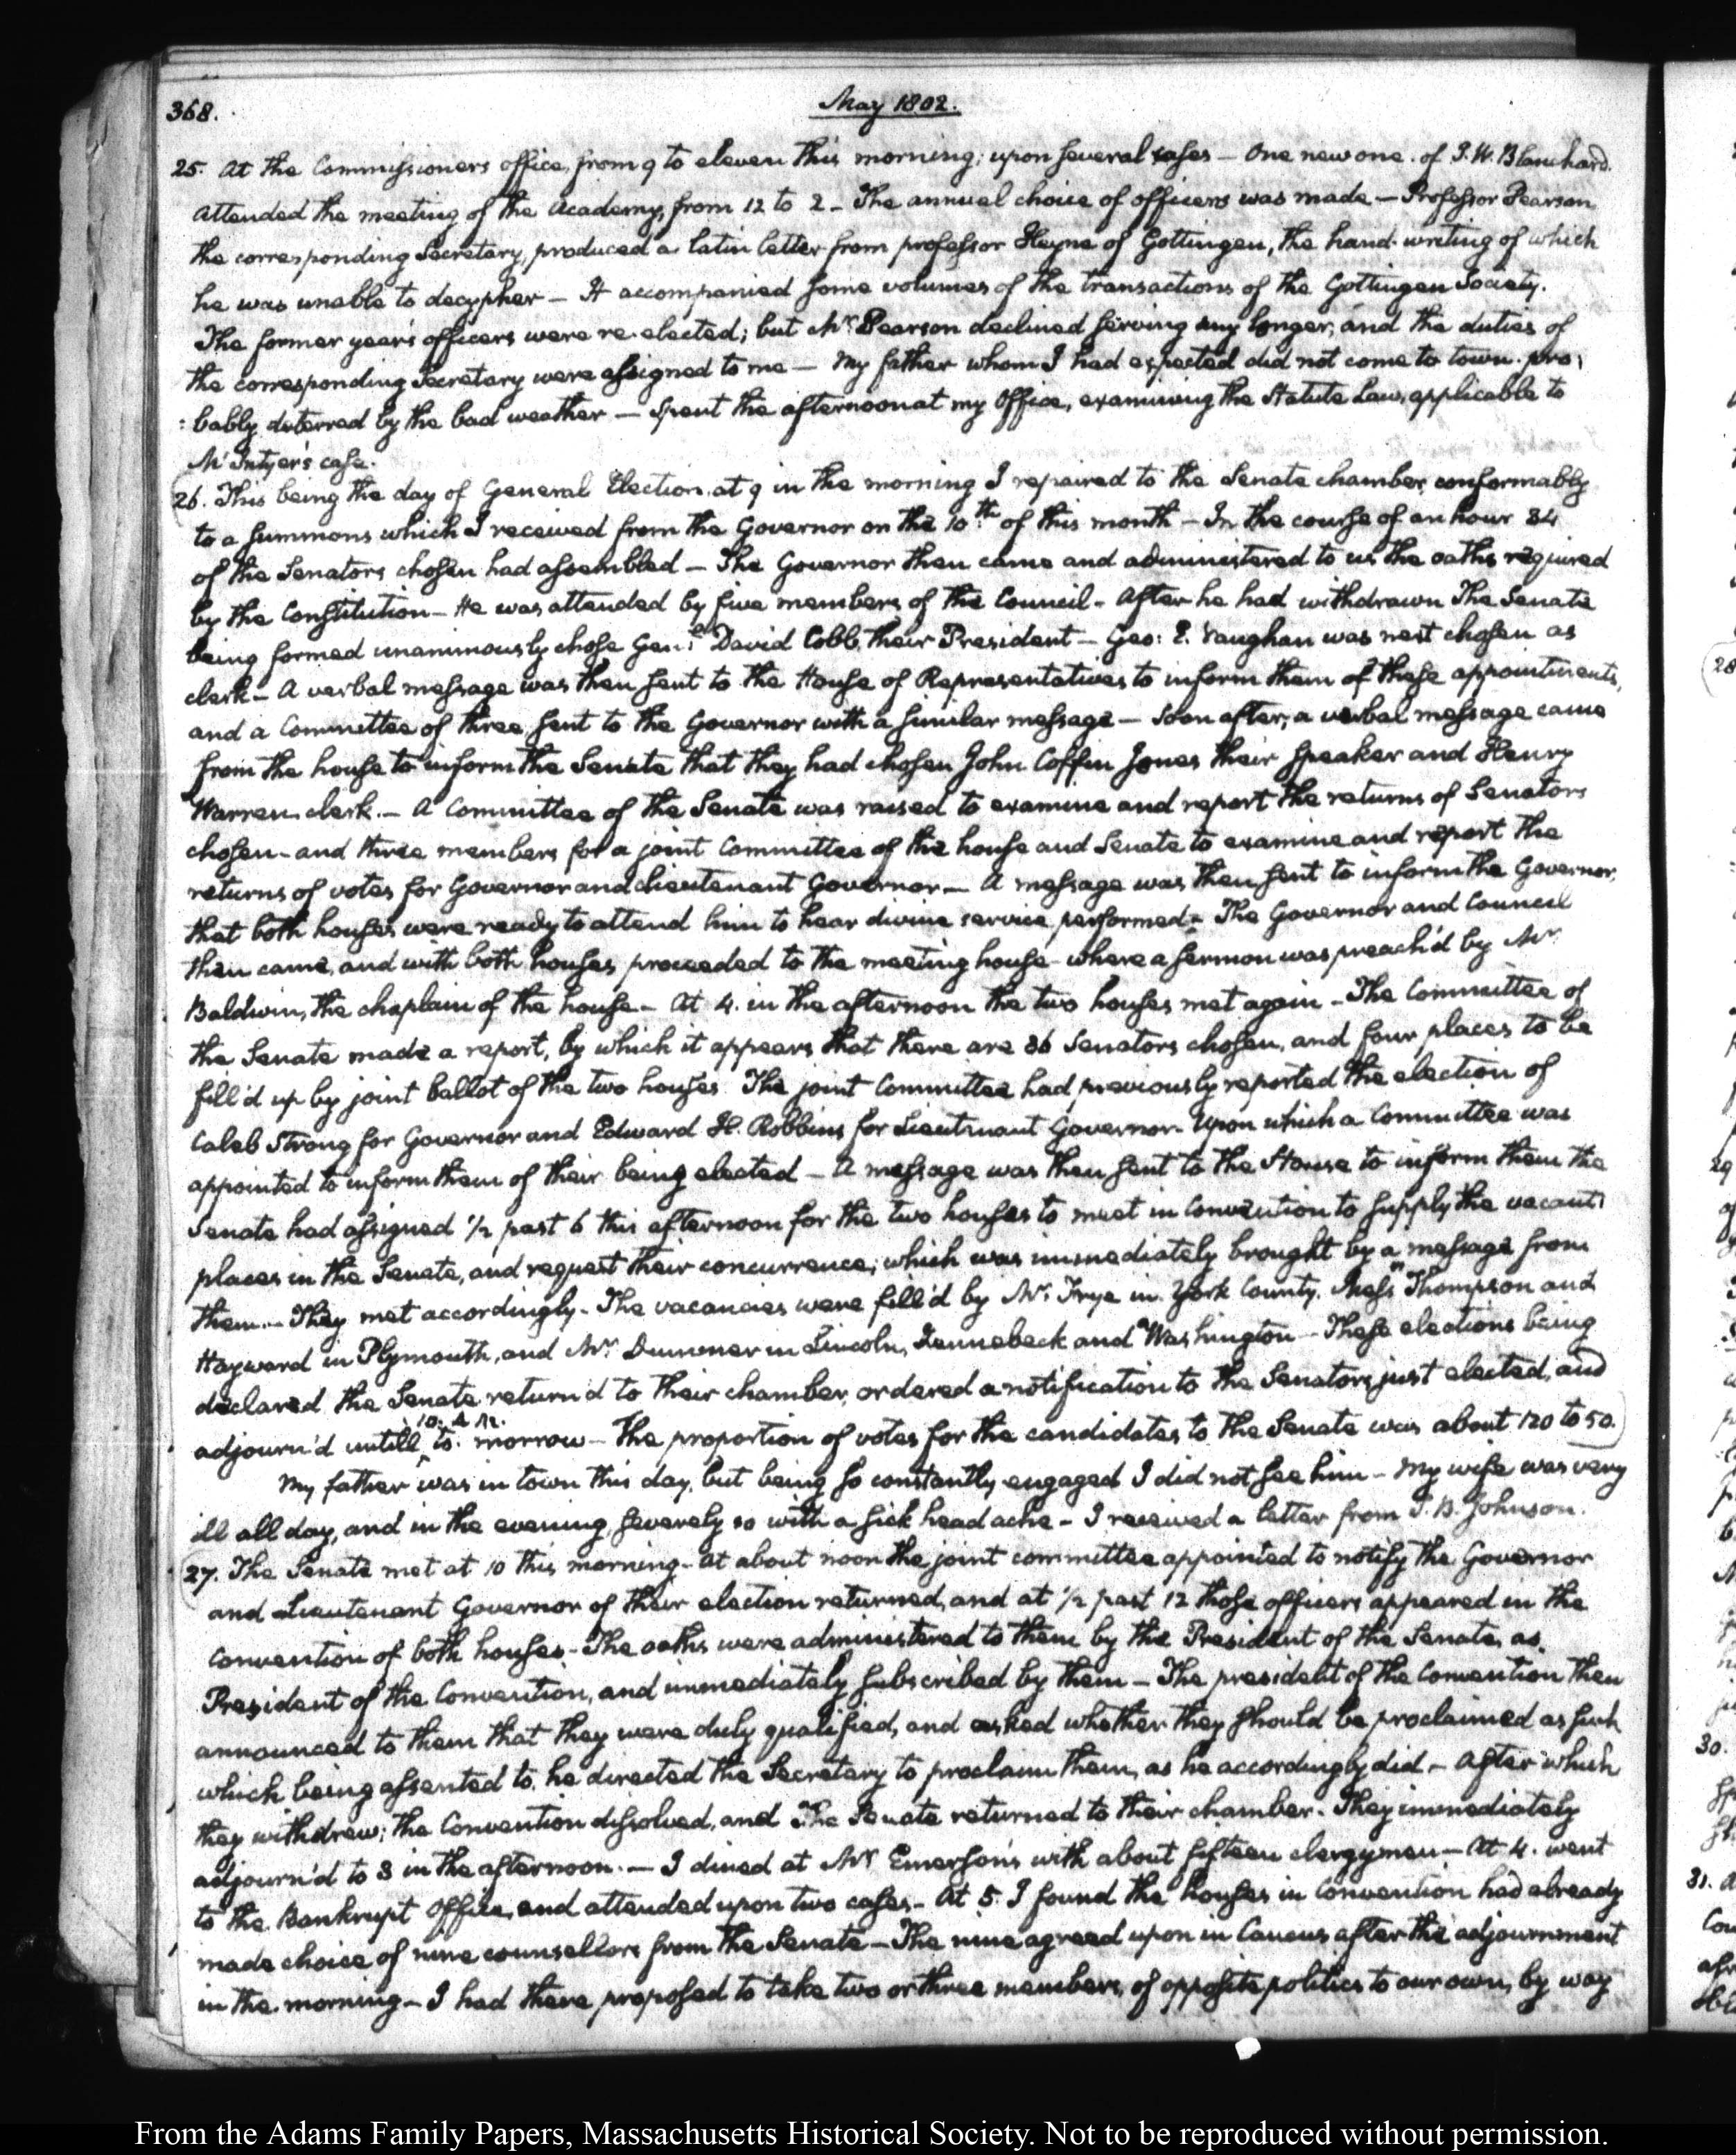 368.
May 1802.
25. At the Commissioners office, from 9 to eleven this morning; upon several cases — One new one. of J. W. Blanchard.
Attended the meeting of the Academy, from 12 to 2 — The annual choice of officers was made — Professor Pearson
the corresponding Secretary, produced a latin letter from professor Heyne of Gottingen, the hand-writing of which
he was unable to decypher — It accompanied some volumes of the transactions of the Gottingen Society.
The former year's officers were re-elected; but Mr. Pearson declined serving any longer, and the duties of
the corresponding Secretary were assigned to me — My father whom I had expected did not come to town. pro:
:bably deterred by the bad weather — Spent the afternoon at my Office, examining the Statute Law, applicable to
McIntyer's case.
26. This being the day of General Election, at 9 in the morning I repaired to the Senate chamber, conformably
to a summons which I received from the Governor on the 10th of this month — In the course of an hour 34
of the Senators chosen had assembled — The Governor then came and administered to us the oaths required
by the Constitution — He was attended by five members of the Council — After he had withdrawn The Senate
being formed unanimously chose Genl. David Cobb, their President — Geo: E. Vaughan was next chosen as
clerk — A verbal message was then sent to the House of Representatives to inform them of these appointments,
and a Committee of three sent to the Governor with a similar message — Soon after, a verbal message came
from the house to inform the Senate that they had chosen John Coffin Jones their speaker and Henry
Warren clerk. — A Committee of the Senate was raised to examine and report the returns of Senators
chosen — and three members for a joint Committee of the house and Senate to examine and report the
returns of votes for Governor and Lieutenant Governor — A message was then sent to inform the Governor,
that both houses were ready to attend him to hear divine service performed — The Governor and Council
then came, and with both houses, proceeded to the meeting house where a sermon was preach'd by Mr.
Baldwin, the chaplain of the house — At 4. in the afternoon the two houses met again — The Committee of
the Senate made a report, by which it appears that there are 36 Senators chosen, and four places to be
fill'd up by joint ballot of the two houses. The joint Committee had previously reported the election of
Caleb Strong for Governor and Edward H. Robbins for Lieutenant Governor. Upon which a Committee was
appointed to inform them of their being elected — A message was then sent to the House to inform them the
Senate had assigned 1/2 past 6 this afternoon for the two houses to meet in Convention to supply the vacant
places in the Senate, and request their concurrence; which was immediately brought by a message from
them. — They met accordingly — The vacancies were fill'd by Mr. Frye in York County. Messrs Thompson and
Hayward in Plymouth, and Mr. Dummer in Lincoln, Kennebeck and Washington — These elections being
declared the Senate return'd to their chamber, ordered a notification to the Senators just elected, and
adjourn'd untill 10. A.M. to-morrow — The proportion of votes for the candidates to the Senate was about 120 to 50.
My father was in town this day, but being so constantly engaged I did not see him — My wife was very
ill all day, and in the evening, severely so with a sick head ache — I received a letter from T. B. Johnson.
27. The Senate met at 10 this morning — At about noon the joint committee appointed to notify the Governor
and Lieutenant Governor of their election returned, and at 1/2 past 12 those officers appeared in the
Convention of both houses — The oaths were administered to them by the President of the Senate, as
President of the Convention, and immediately subscribed by them — The president of the Convention then
announced to them that they were duly qualified, and asked whether they should be proclaimed as such
which being assented to, he directed the Secretary to proclaim them, as he accordingly did — After which
they withdrew; the Convention dissolved, and The Senate returned to their chamber. They immediately
adjourn'd to 3 in the afternoon. — I dined at Mr Emerson's with about fifteen clergymen — At 4. went
to the Bankrupt Office, and attended upon two cases — At 5. I found the houses in Convention had already
made choice of nine counsellors from the Senate — The nine agreed upon in Caucus after the adjournment
in the morning — I had there proposed to take two or three members, of opposite politics to our own, by way
28
29
30.
31.
From the Adams Family Papers, Massachusetts Historical Society. Not to be reproduced without permission.